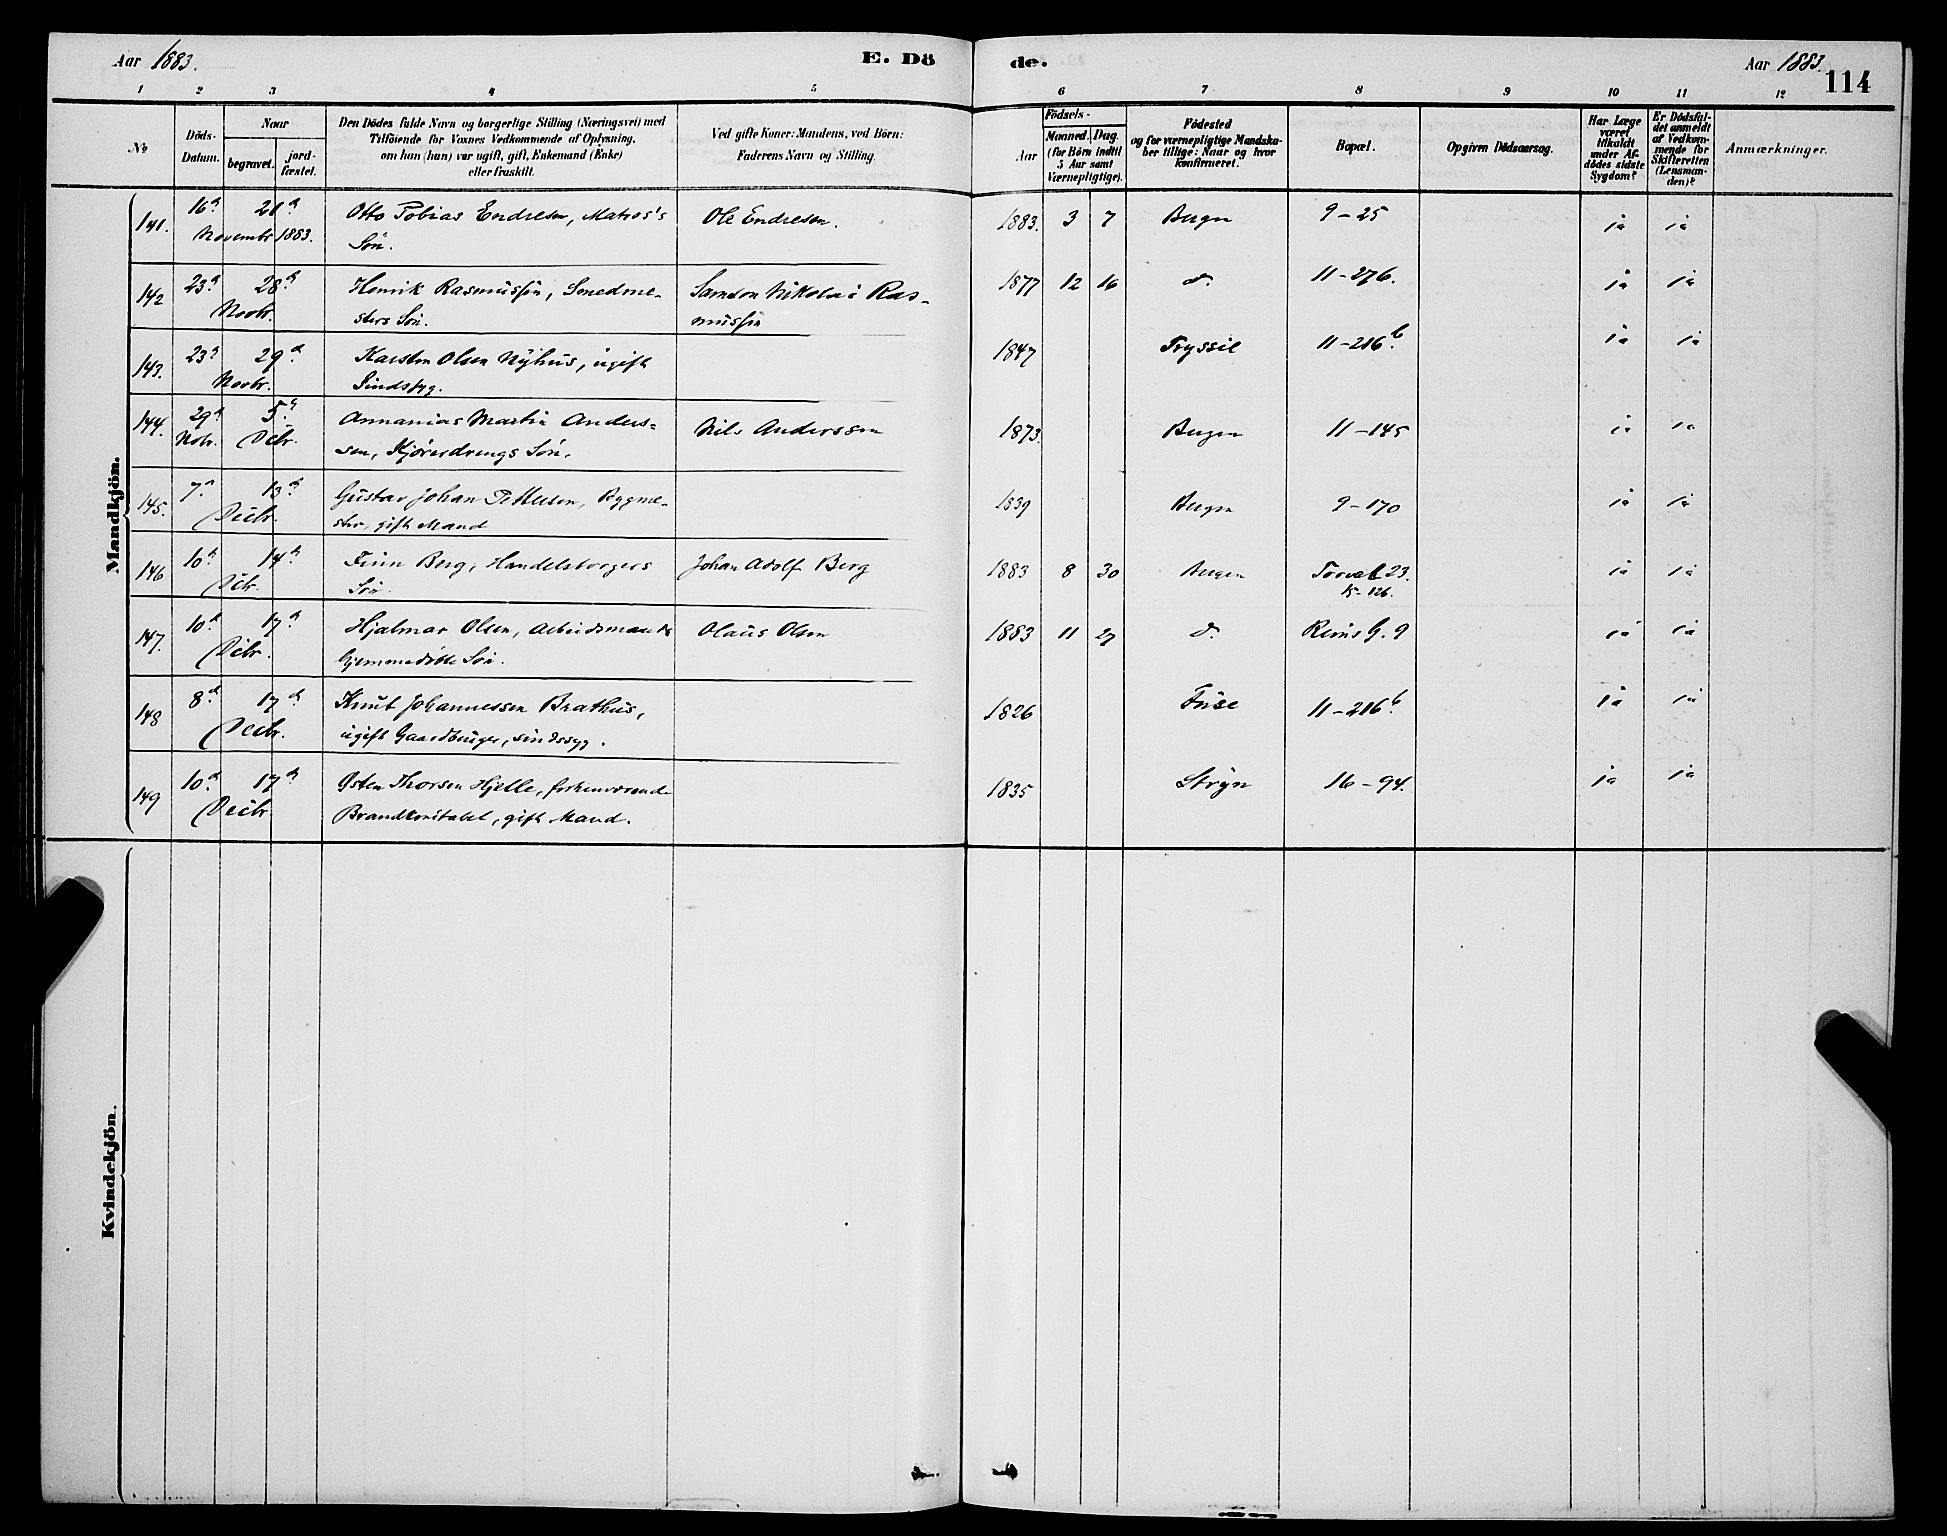 Aar 1883.
E. Dö
de.
Aar 1883.
114
1 2 3 4 5 6 7 8 9 10 11 12
No
Döds-
Datum.
Naar
begravet.
jord-
fæstet.
Den Dödes fulde Navn og borgerlige Stilling (Næringsvei) med
Tilföiende for Voxnes Vedkommende af Oplysning,
om han (hun) var ugift, gift, Enkemand (Enke)
eller fraskilt.
Ved gifte Koner: Mandens, ved Börn:
Faderens Navn og Stilling.
Födsels-
Aar
Maaned. Dag.
(for Börn indtil
5 Aar samt
Værnepligtige).
Födested
og for værnepligtige Mandska-
ber tillige: Naar og hvor
konfirmeret.
Bopæl.
Opgiven Dödsaarsag.
Har Læge
været
tilkaldt
under Af-
dödes sidste
Sygdom?
Er Dödsfal-
det anmeldt
af Vedkom-
mende for
Skifteretten
(Lensman-
den)?
Anmærkninger.
Mandkjön.
141. 16de 21de Otto Tobias Endresen, Matros's Ole Endresen. 1883. 3 7 Bergen 9-25 ja ja
Novembr 1883. Sön.
142 23de 28de Henrik Rasmussen, Smedme- Samson Nikolai Ras- 1877 12 16 do. 11-276. ja ja
Novbr. sters Sön. mussen
143. 23de 29de Karsten Olsen Nyhus, ugift 1847 Tryssil 11-216b. ja ja
Novbr. Sindssyg.
144. 29de 5te Annanias Martin Anders- Nils Anderssen 1873. Bergen 11-145 ja ja
Nobr. Decbr. sen, Kjøredrengs Sön.
145. 7de 13de Gustav Johan Pettersen, Bygme- 1839 Bergen 9-170 ja ja
Decbr. ster, gift Mand
146 10de 14de Finn Berg, Handelsborgers Johan Adolf Berg 1883 8 30 Bergen Torval 23. ja ja
Decbr. Sön. 15-126.
147. 10de 17de Hjalmar Olsen, Arbeidsmands Olaus Olsen 1883 11 27 do. Reins G. 9 ja ja
Decbr. hjemmedöbte Sön.
148 8de 17de Knut Johannessen Brathus, 1826 Fuse 11-216b. ja ja
Decbr. ugift Gaardbruger, sindssyg.
149 10de 17de Osten Thorsen Hjelle, forhenværende 1835 Stryn 16-94. ja ja
Decbr. Brandkonstabel, gift Mand.
Kvindekjön.